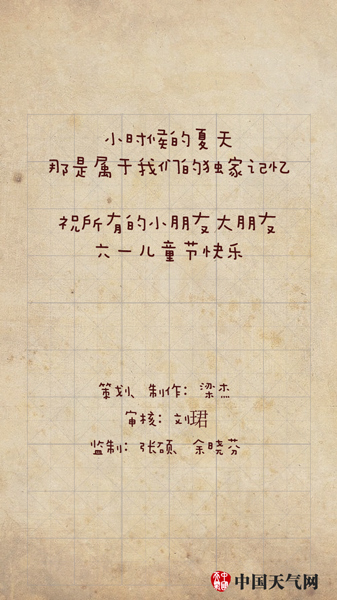 小时候的夏天
那是属于我们的独家记忆
祝所有的小朋友大朋友
六一儿童节快乐
策划、制作：梁杰
审核：刘珺
监制：张硕、余晓芬
中国天气网